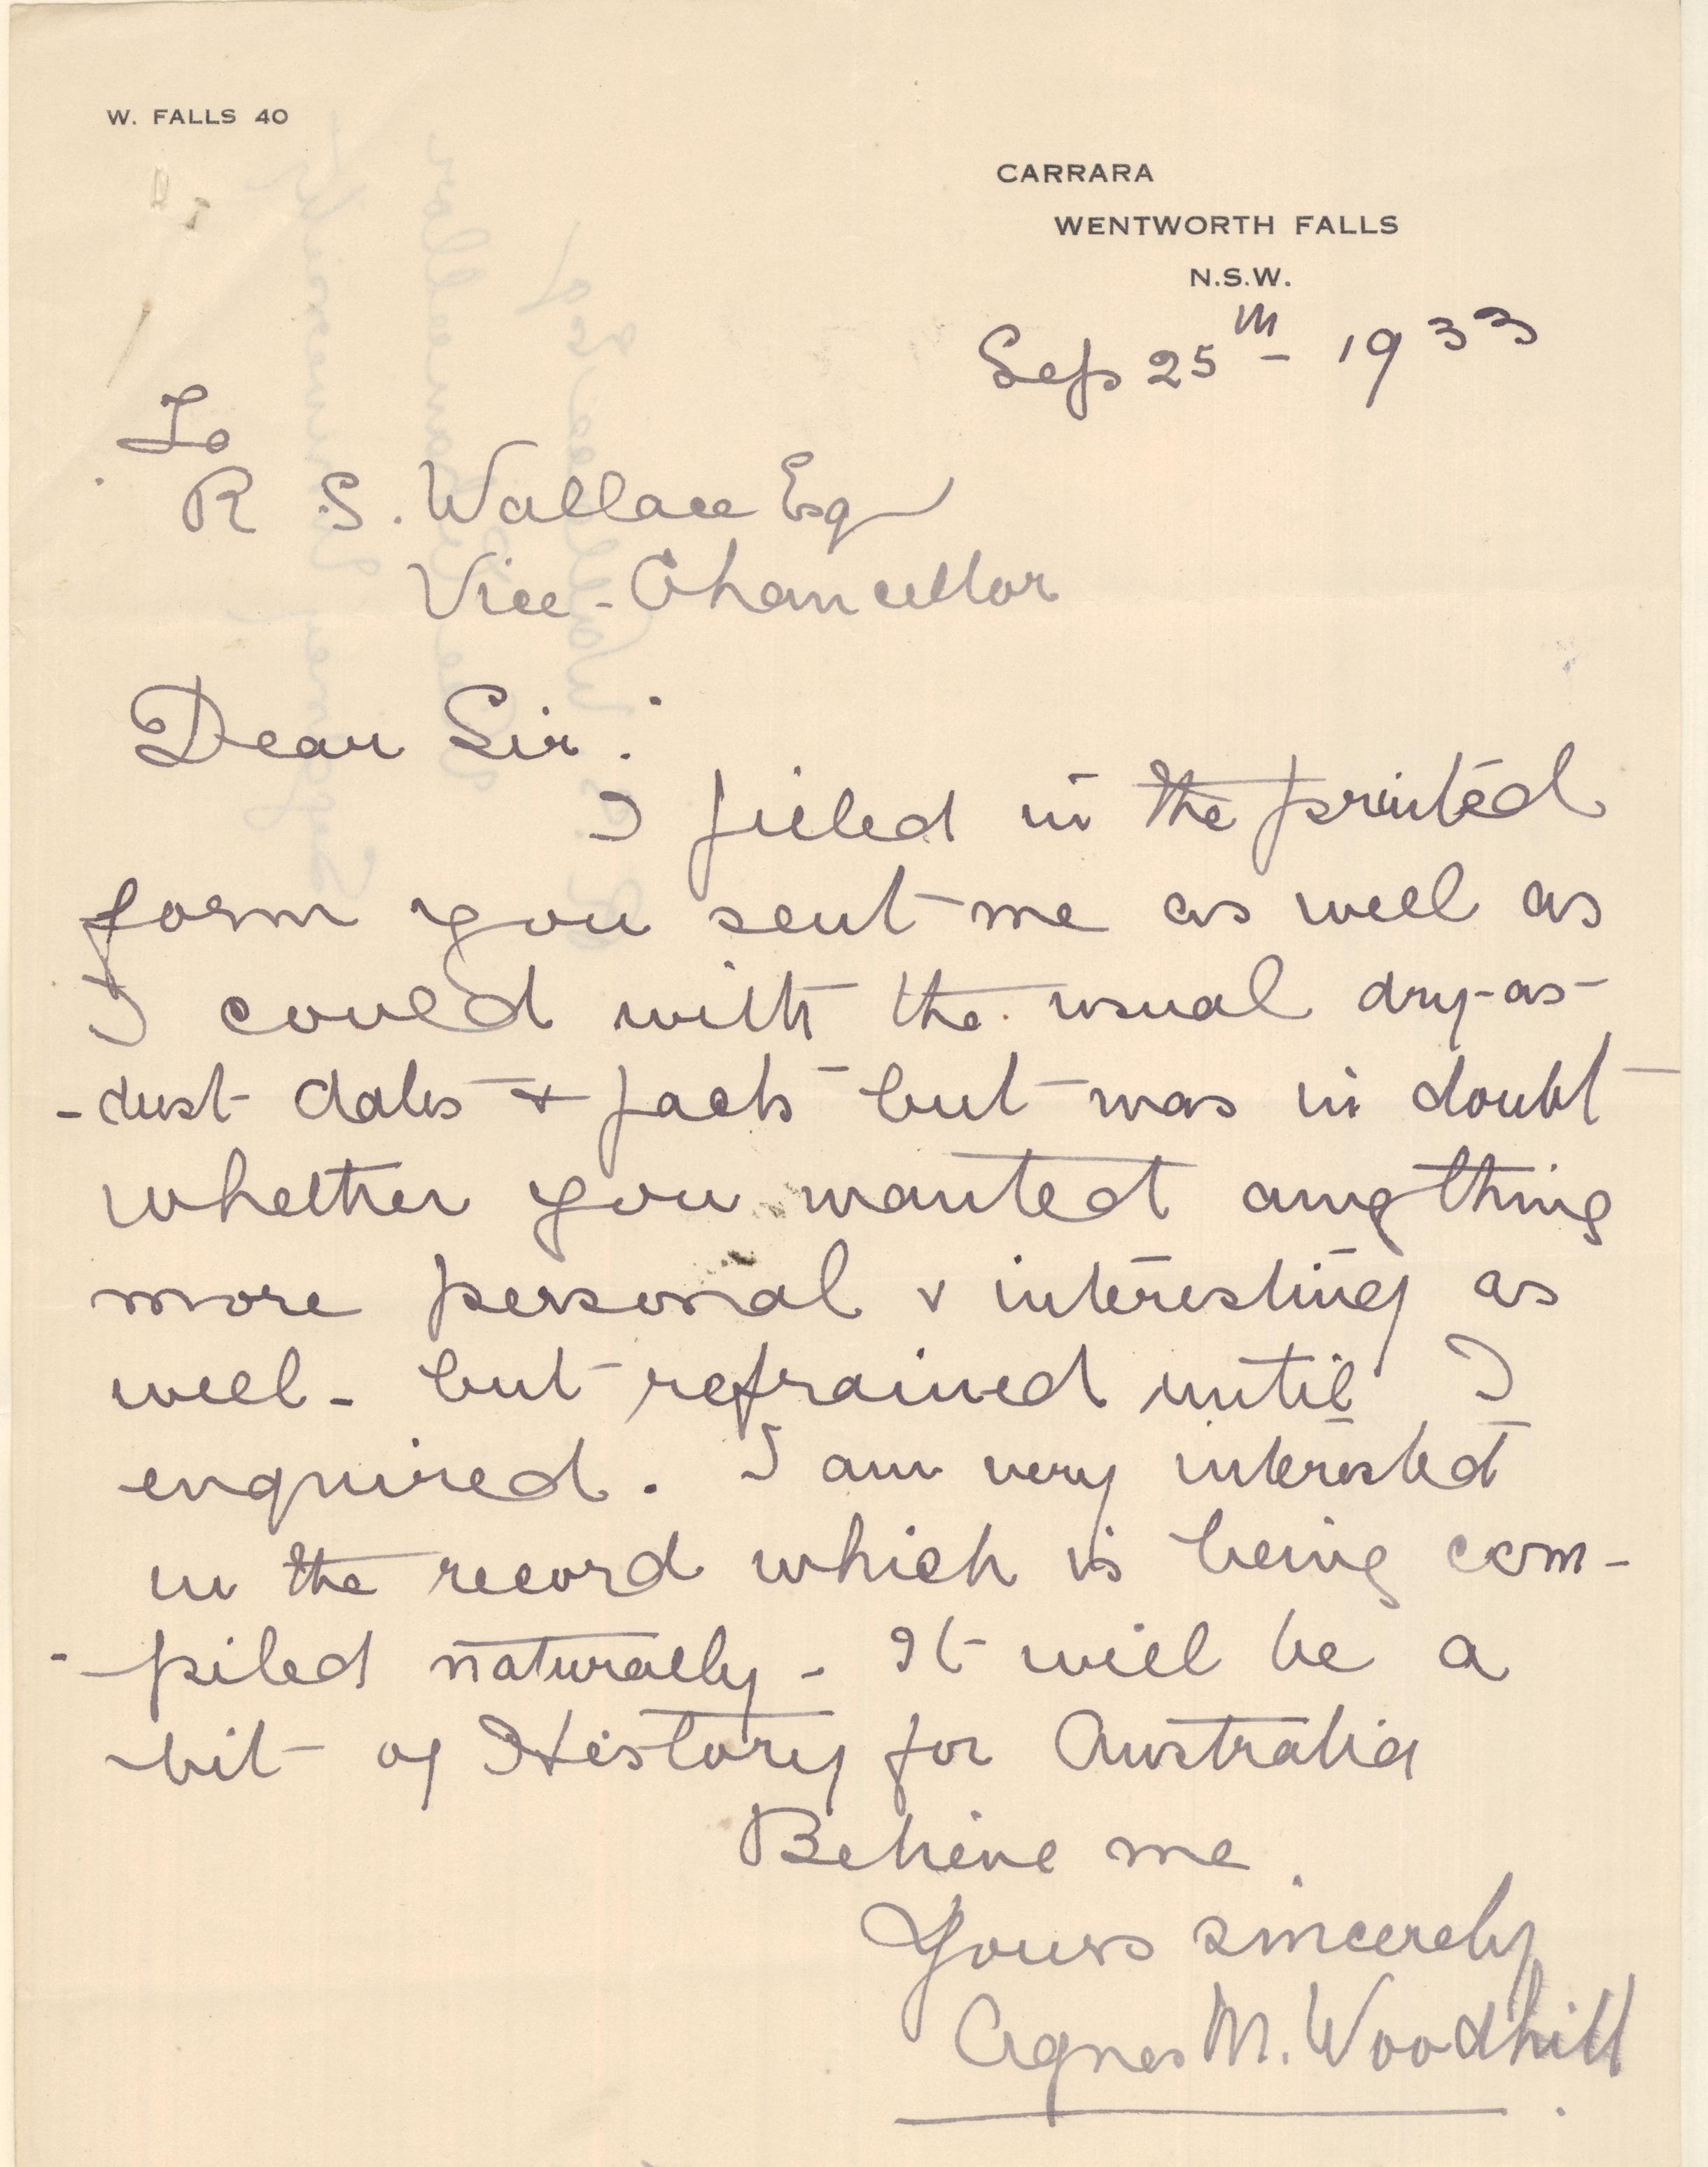 W. FALLS 40
CARRARA
WENTWORTH FALLS
N.S.W.
Sep 25th 1933
To
R S. Wallace Esq
Vice-Chancellor
Dear Sir:
I filled in the printed
form you sent me as well as
I could with the usual dry-as-
-dust dates & facts but was in doubt
whether you wanted anything
more personal & interesting as
well - but refrained until I
enquired. I am very interested
in the record which is being com-
-piled naturally - It will be a
bit of History for Australia
Believe me
Yours sincerely
Agnes M. Woodhill